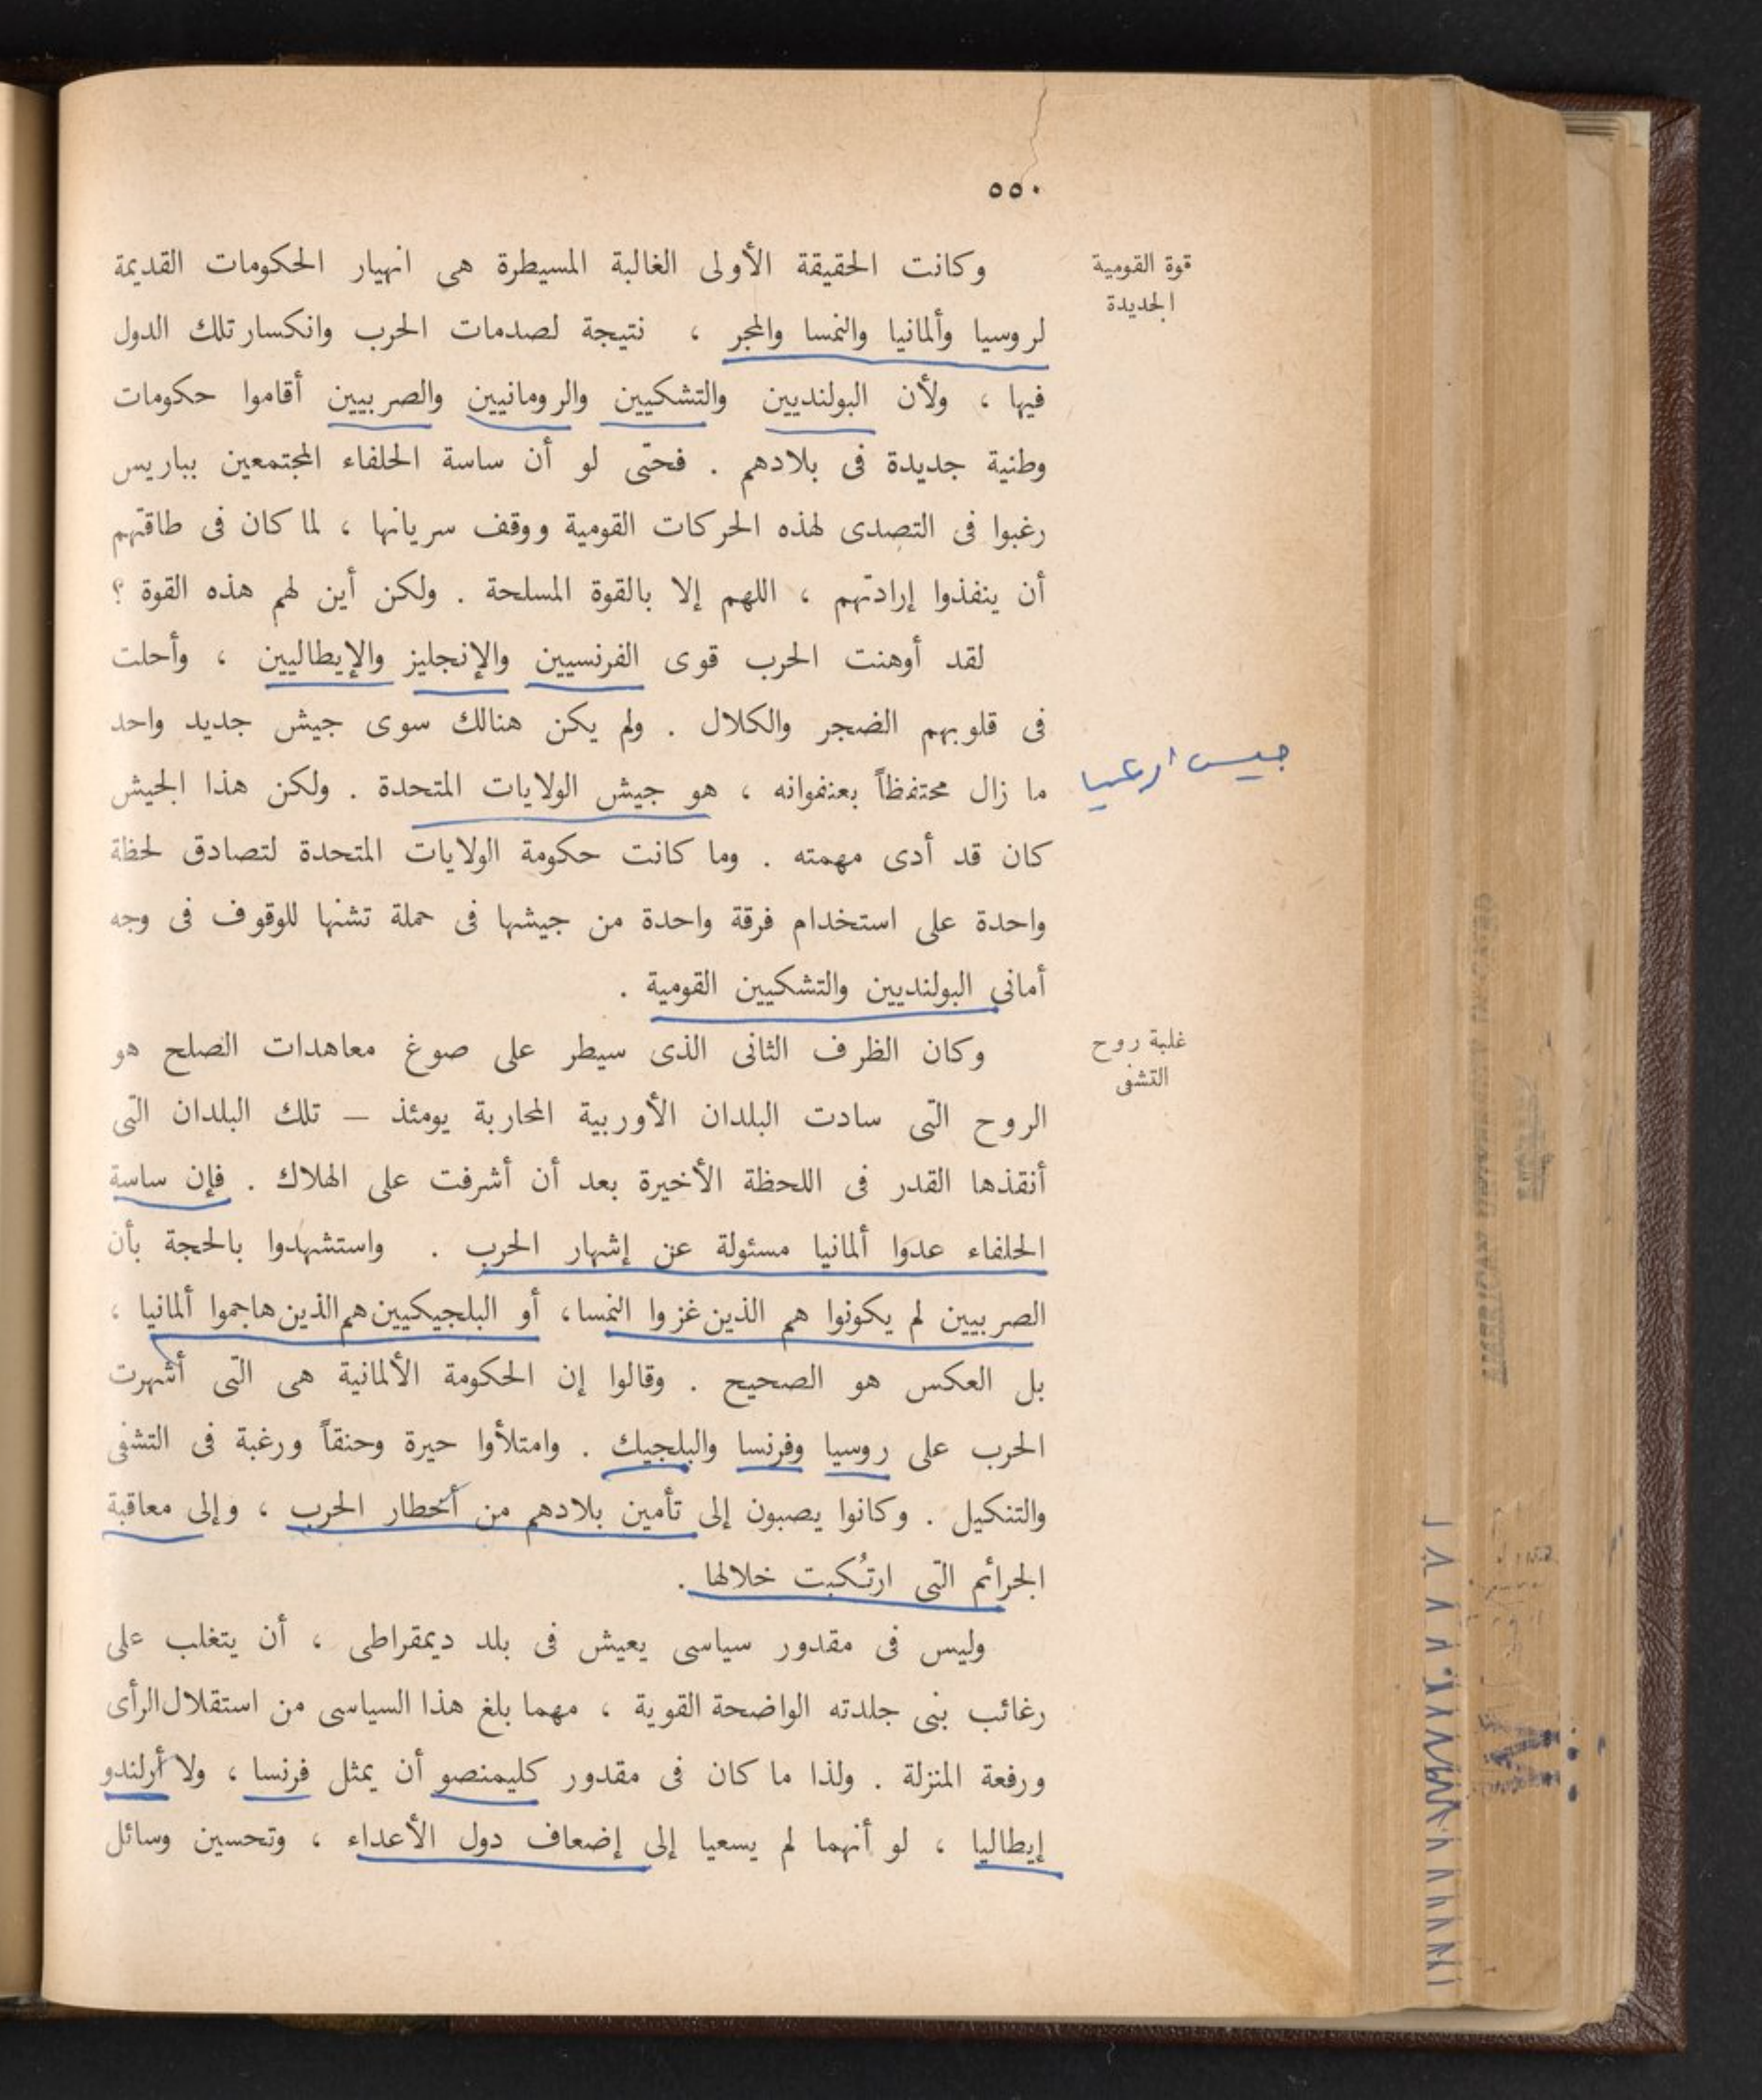 ٥٥٠
قوة القومية
الجديدة
وكانت الحقيقة الأولى الغالبة المسيطرة هى انهيار الحكومات القديمة
لروسيا وألمانيا والنمسا والمجر ، نتيجة لصدمات الحرب وانكسار تلك الدول
فيها ، ولأن البولنديين والتشكيين والرومانيين والصربيين أقاموا حكومات
وطنية جديدة فى بلادهم . فحتى لو أن ساسة الحلفاء المجتمعين بباريس
رغبوا فى التصدى لهذه الحركات القومية ووقف سريانها ، لما كان فى طاقتهم
أن ينفذوا إرادتهم ، اللهم إلا بالقوة المسلحة . ولكن أين لهم هذه القوة ؟
لقد أوهنت الحرب قوى الفرنسيين والإنجليز والإيطاليين ، وأحلت
فى قلوبهم الضجر والكلال . ولم يكن هنالك سوى جيش جديد واحد
ما زال محتفظاً بعنفوانه ، هو جيش الولايات المتحدة . ولكن هذا الجيش
كان قد أدى مهمته . وما كانت حكومة الولايات المتحدة لتصادق لحظة
واحدة على استخدام فرقة واحدة من جيشها فى حملة تشنها للوقوف فى وجه
أمانى البولنديين والتشكيين القومية .
غلبة روح
التشفى
وكان الظرف الثانى الذى سيطر على صوغ معاهدات الصلح هو
الروح التى سادت البلدان الأوربية المحاربة يومئذ – تلك البلدان التى
أنقذها القدر فى اللحظة الأخيرة بعد أن أشرفت على الهلاك . فإن ساسة
الحلفاء عدوا ألمانيا مسئولة عن إشهار الحرب . واستشهدوا بالحجة بأن
الصربيين لم يكونوا هم الذين غزوا النمسا، أو البلجيكيين هم الذين هاجموا ألمانيا ،
بل العكس هو الصحيح . وقالوا إن الحكومة الألمانية هى التى أشهرت
الحرب على روسيا وفرنسا والبلجيك . وامتلأوا حيرة وحنقاً ورغبة فى التشفى
والتنكيل . وكانوا يصبون إلى تأمين بلادهم من أخطار الحرب ، وإلى معاقبة
الجرائم التى ارتُكبت خلالها .
وليس فى مقدور سياسى يعيش فى بلد ديمقراطى ، أن يتغلب على
رغائب بنى جلدته الواضحة القوية ، مهما بلغ هذا السياسى من استقلال الرأى
ورفعة المنزلة . ولذا ما كان فى مقدور كليمنصو أن يمثل فرنسا ، ولا أرلندو
إيطاليا ، لو أنهما لم يسعيا إلى إضعاف دول الأعداء ، وتحسين وسائل